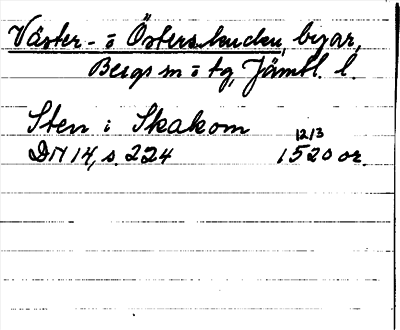 Väster- o Österskucku, byar,
Bergs sn o tg, Jämtl. l.
Sten i Skakom
12/3
DN 14, s. 224 1520 or.